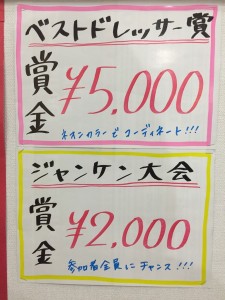 ベストドレッサー賞
賞金 ¥5,000
ネオンカラーでコーディネート!!!
ジャンケン大会
賞金 ¥2,000
参加者全員にチャンス!!!